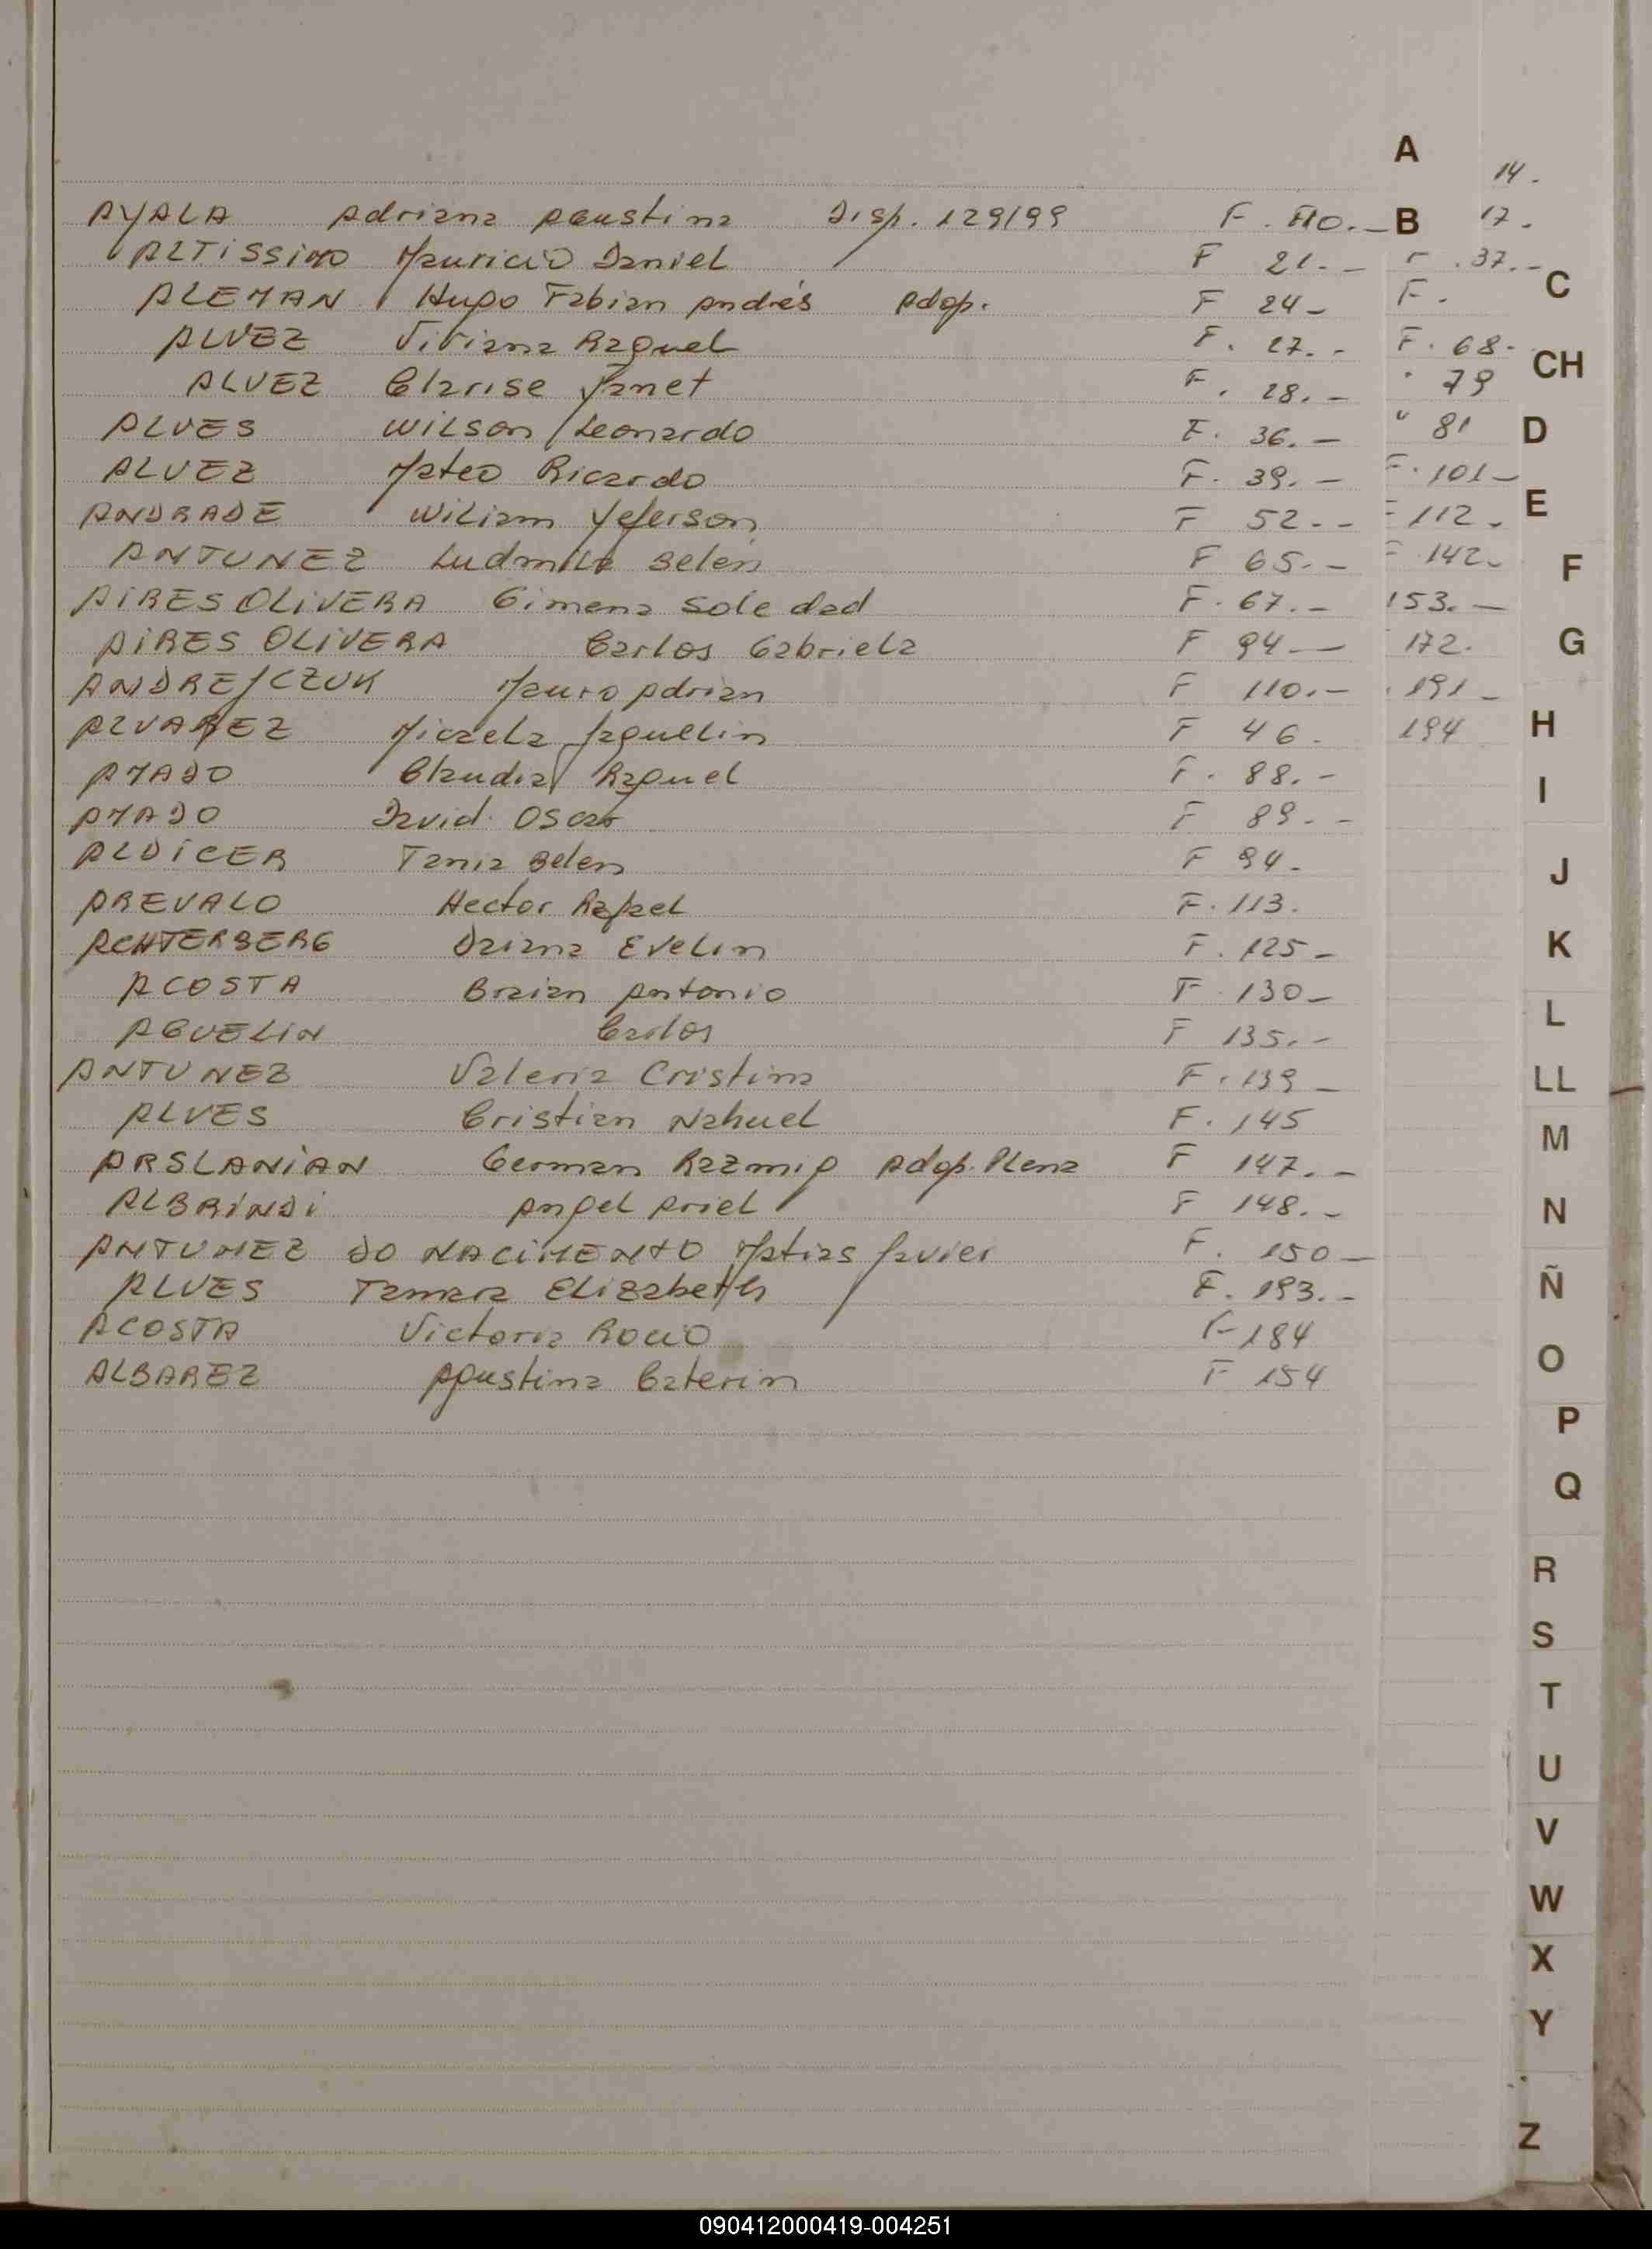 A
14.
AYALA Adriana Agustina Disp. 129/99 F. 10.- B 17.
ALTISSIMO Mauricio Daniel F 21.- F .37.-
C
ALEMAN Hugo Fabian Andrés Adop. F 24- F.
ALVEZ Viviana Raquel F. 27.- F. 68-
CH
ALVEZ Clarise Janet F. 28.- " 79
ALVES Wilson Leonardo F. 36.- " 81 D
ALVEZ Mateo Ricardo F. 39.- F. 101-
ANDRADE Wiliam Yeferson F 52.- F 112.
E
ANTUNEZ Ludmila Belén F 65.- F 142.
F
AIRES OLIVERA Gimena Soledad F. 67.- 153.-
AIRES OLIVERA Carlos Gabriela F 94.- 172.
G
ANDREJCZUK Mauro Adrian F 110.- . 191-
ALVAREZ Micaela Jaquelin F 46. 194
H
AMADO Claudia Raquel F. 88.-
I
AMADO David Oscar F 89.-
ALDICER Tania Belen F 94.
J
AREVALO Hector Rafael F. 113.
ACHTERBERG Daiana Evelin F. 125-
K
ACOSTA Braian Antonio F 130-
L
AGUELIN Carlos F 135.-
ANTUNEZ Valeria Cristina F. 139-
LL
ALVES Cristian Nahuel F. 145
M
ARSLANIAN German Razmig Adop. Plena F 147.-
ALBRINDI Angel Ariel F 148.-
N
ANTUNEZ DO NACIMENTO Matias Javier F. 150-
ALVES Tamara Elizabeth F. 193.-
Ñ
ACOSTA Victoria Rocio F 184
O
ALBAREZ Agustina Caterin F 154
P
Q
R
S
T
U
V
W
X
Y
Z
090412000419-004251